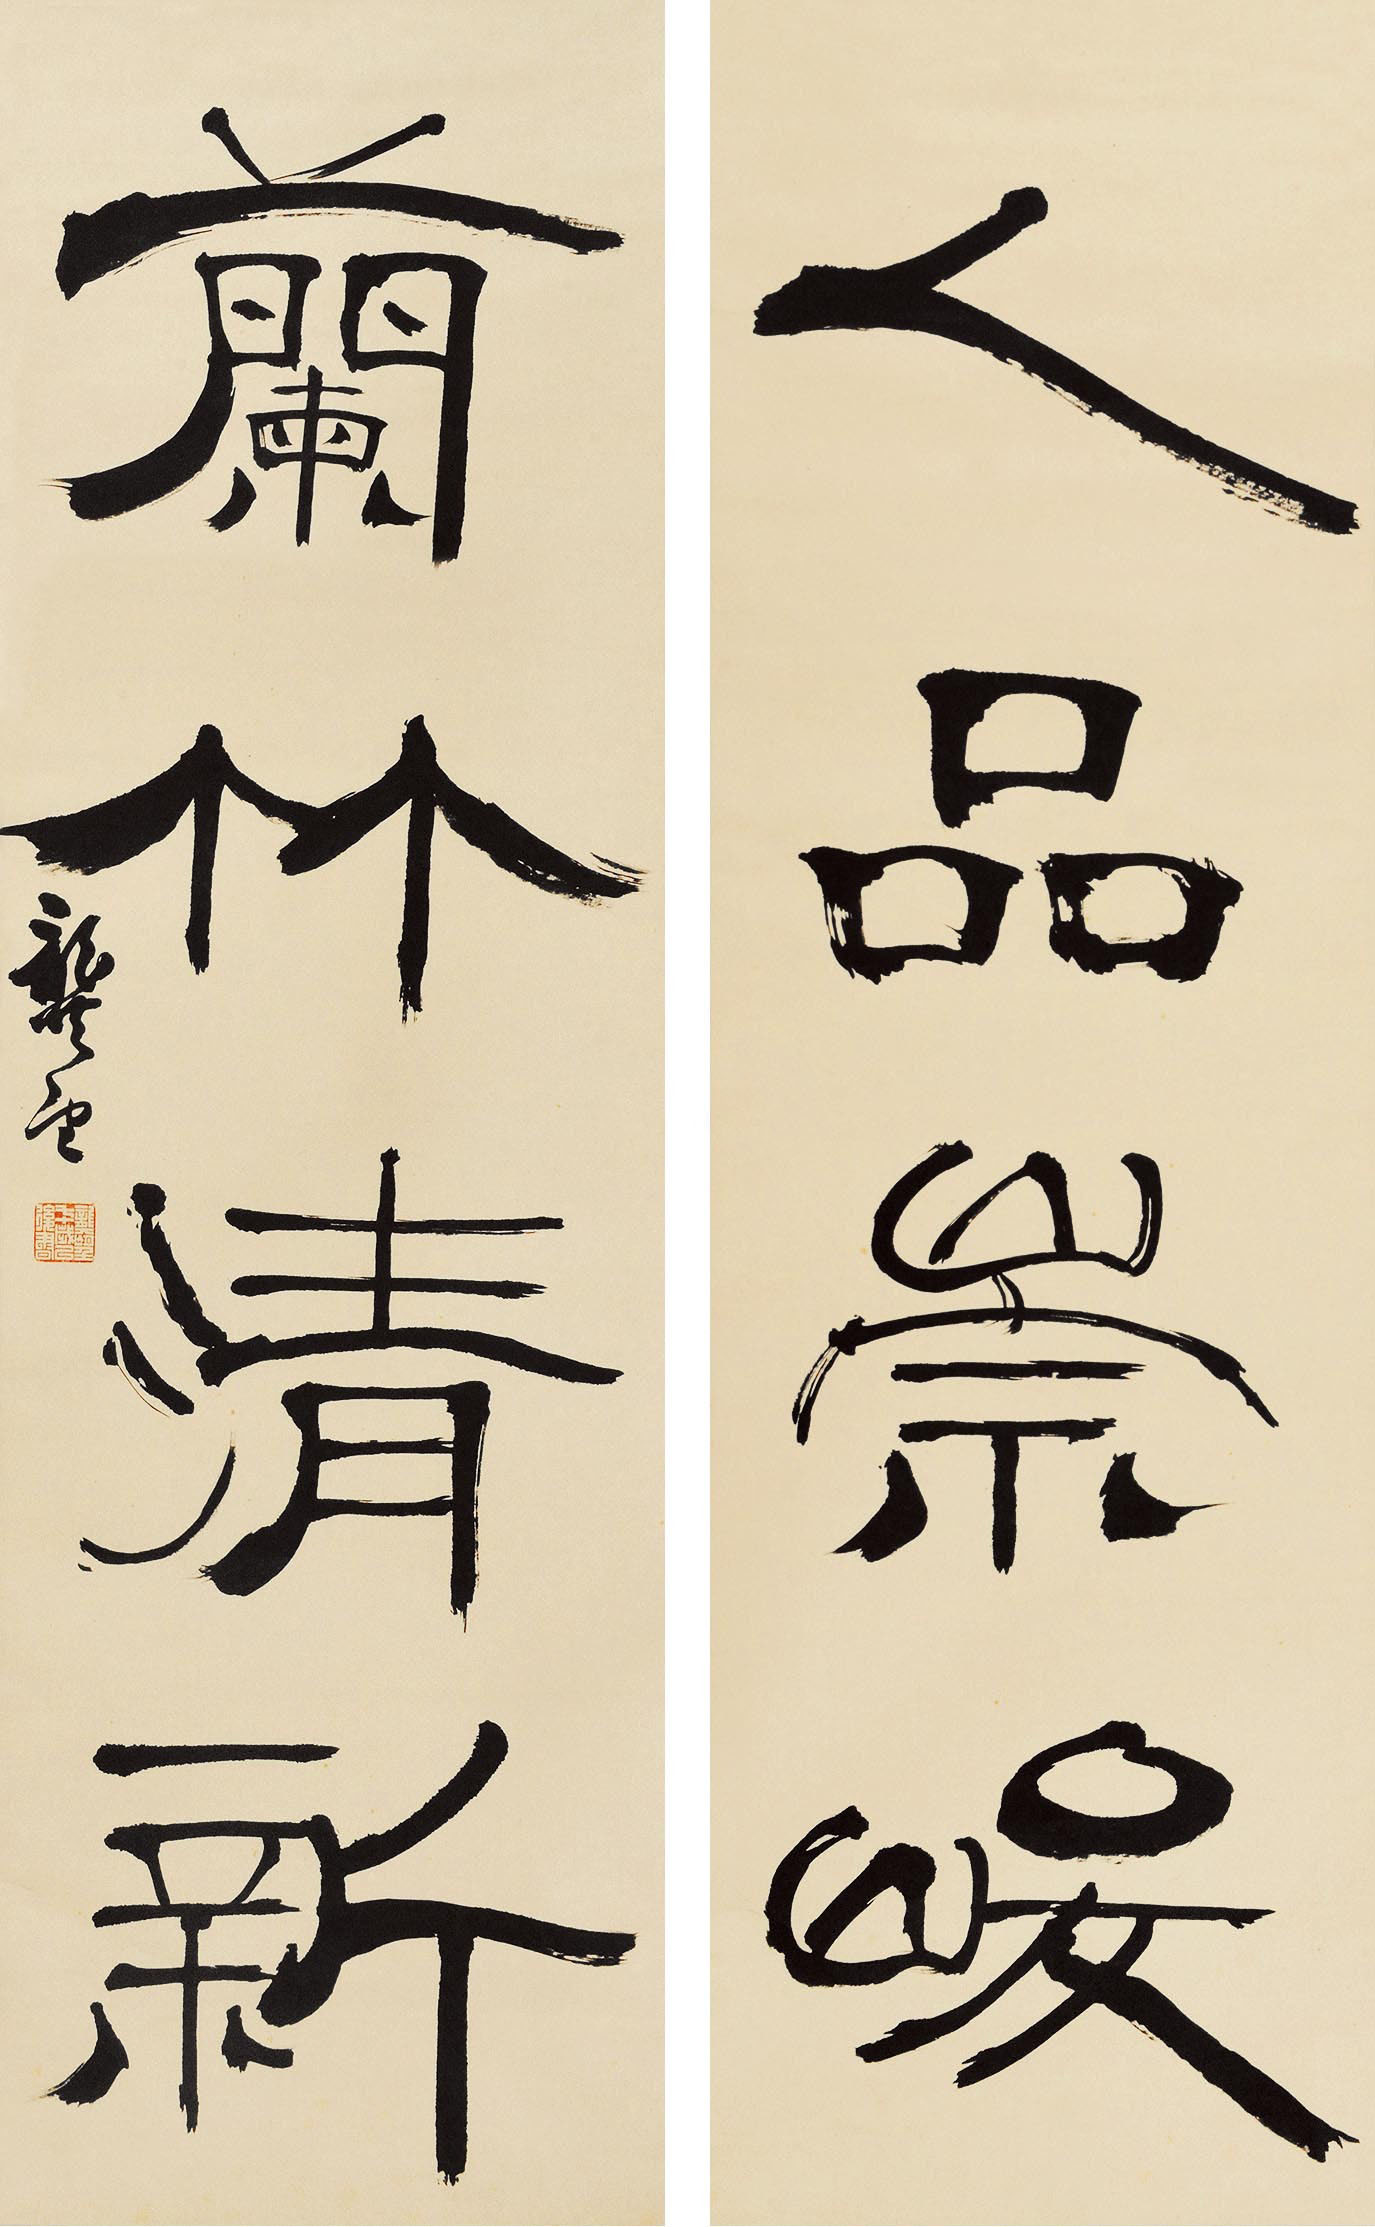 人品崇峻
蘭竹清新
龔望